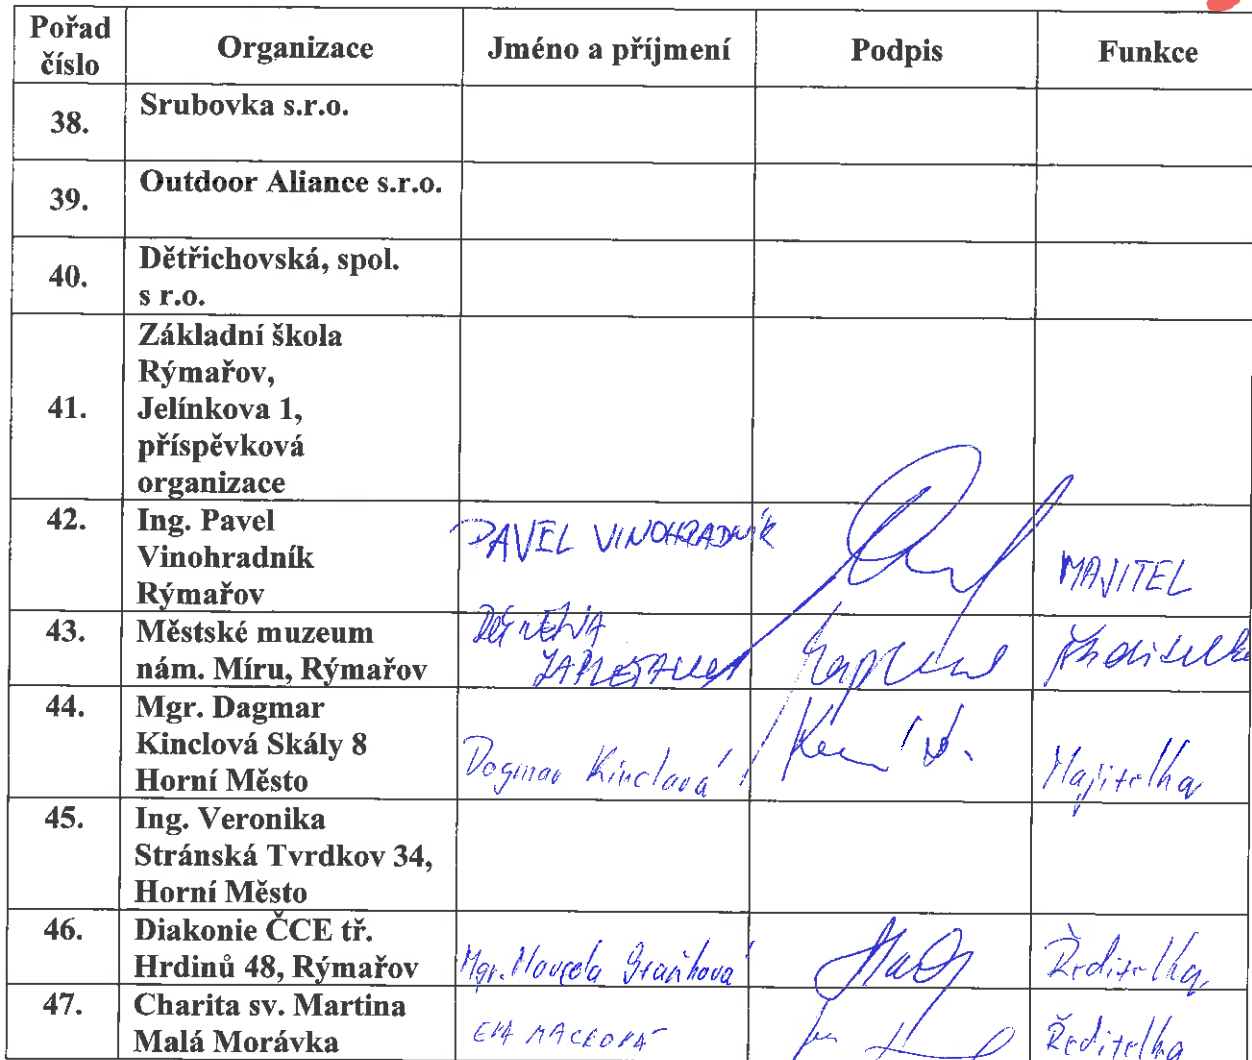 Pořad číslo
Organizace
Jméno a příjmení
Podpis
Funkce
38.
Srubovka s.r.o.
39.
Outdoor Aliance s.r.o.
40.
Dětřichovská, spol.
s r.o.
41.
Základní škola
Rýmařov,
Jelínkova 1,
příspěvková
organizace
42.
Ing. Pavel
Vinohradník
Rýmařov
PAVEL VINOHRADNÍK
MAJITEL
43.
Městské muzeum
nám. Míru, Rýmařov
ředitelka
44.
Mgr. Dagmar
Kinclová Skály 8
Horní Město
Dagmar Kinclová
Majitelka
45.
Ing. Veronika
Stránská Tvrdkov 34,
Horní Město
46.
Diakonie ČCE tř.
Hrdinů 48, Rýmařov
Mgr. Marcela
Ředitelka
47.
Charita sv. Martina
Malá Morávka
EVA MACKOVÁ
Ředitelka